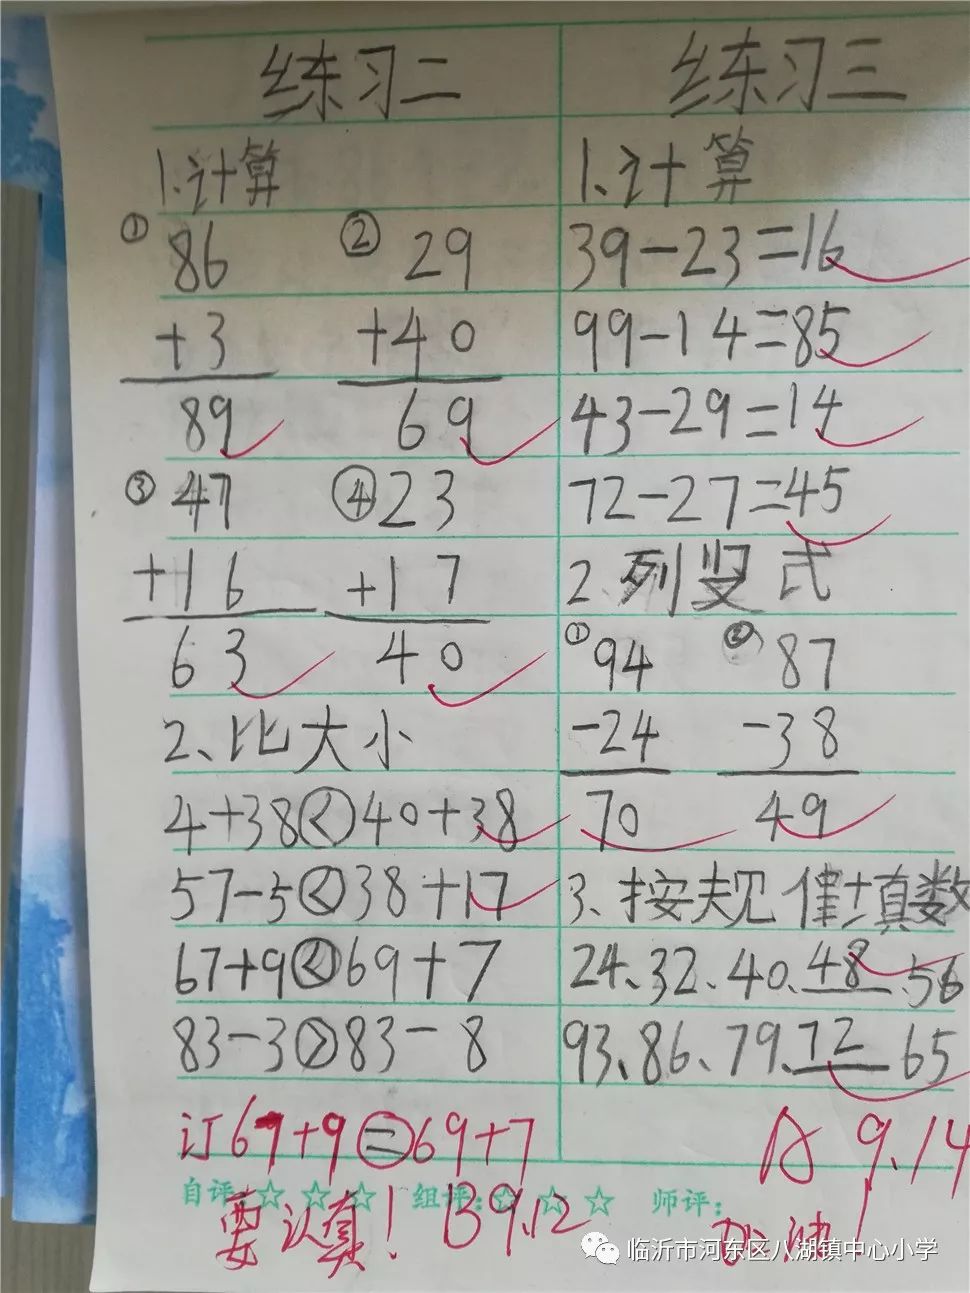 练习二
1.计算
① 86 ② 29
+3 +40
89 69
③ 47 ④ 23
+16 +17
63 40
2、比大小
4+38<40+38
57-5<38+17
67+9<69+7
83-3>83-8
订 67+9=69+7
练习三
1、计算
39-23=16
99-14=85
43-29=14
72-27=45
2.列竖式
① 94 ② 87
-24 -38
70 49
3、按规律填数
24、32、40、48、56
93、86、79、72、65
A 9.14
自评:☆ ☆ ☆ 组评:☆ ☆ ☆ 师评:
要认真! B 9.12
加油!
临沂市河东区八湖镇中心小学